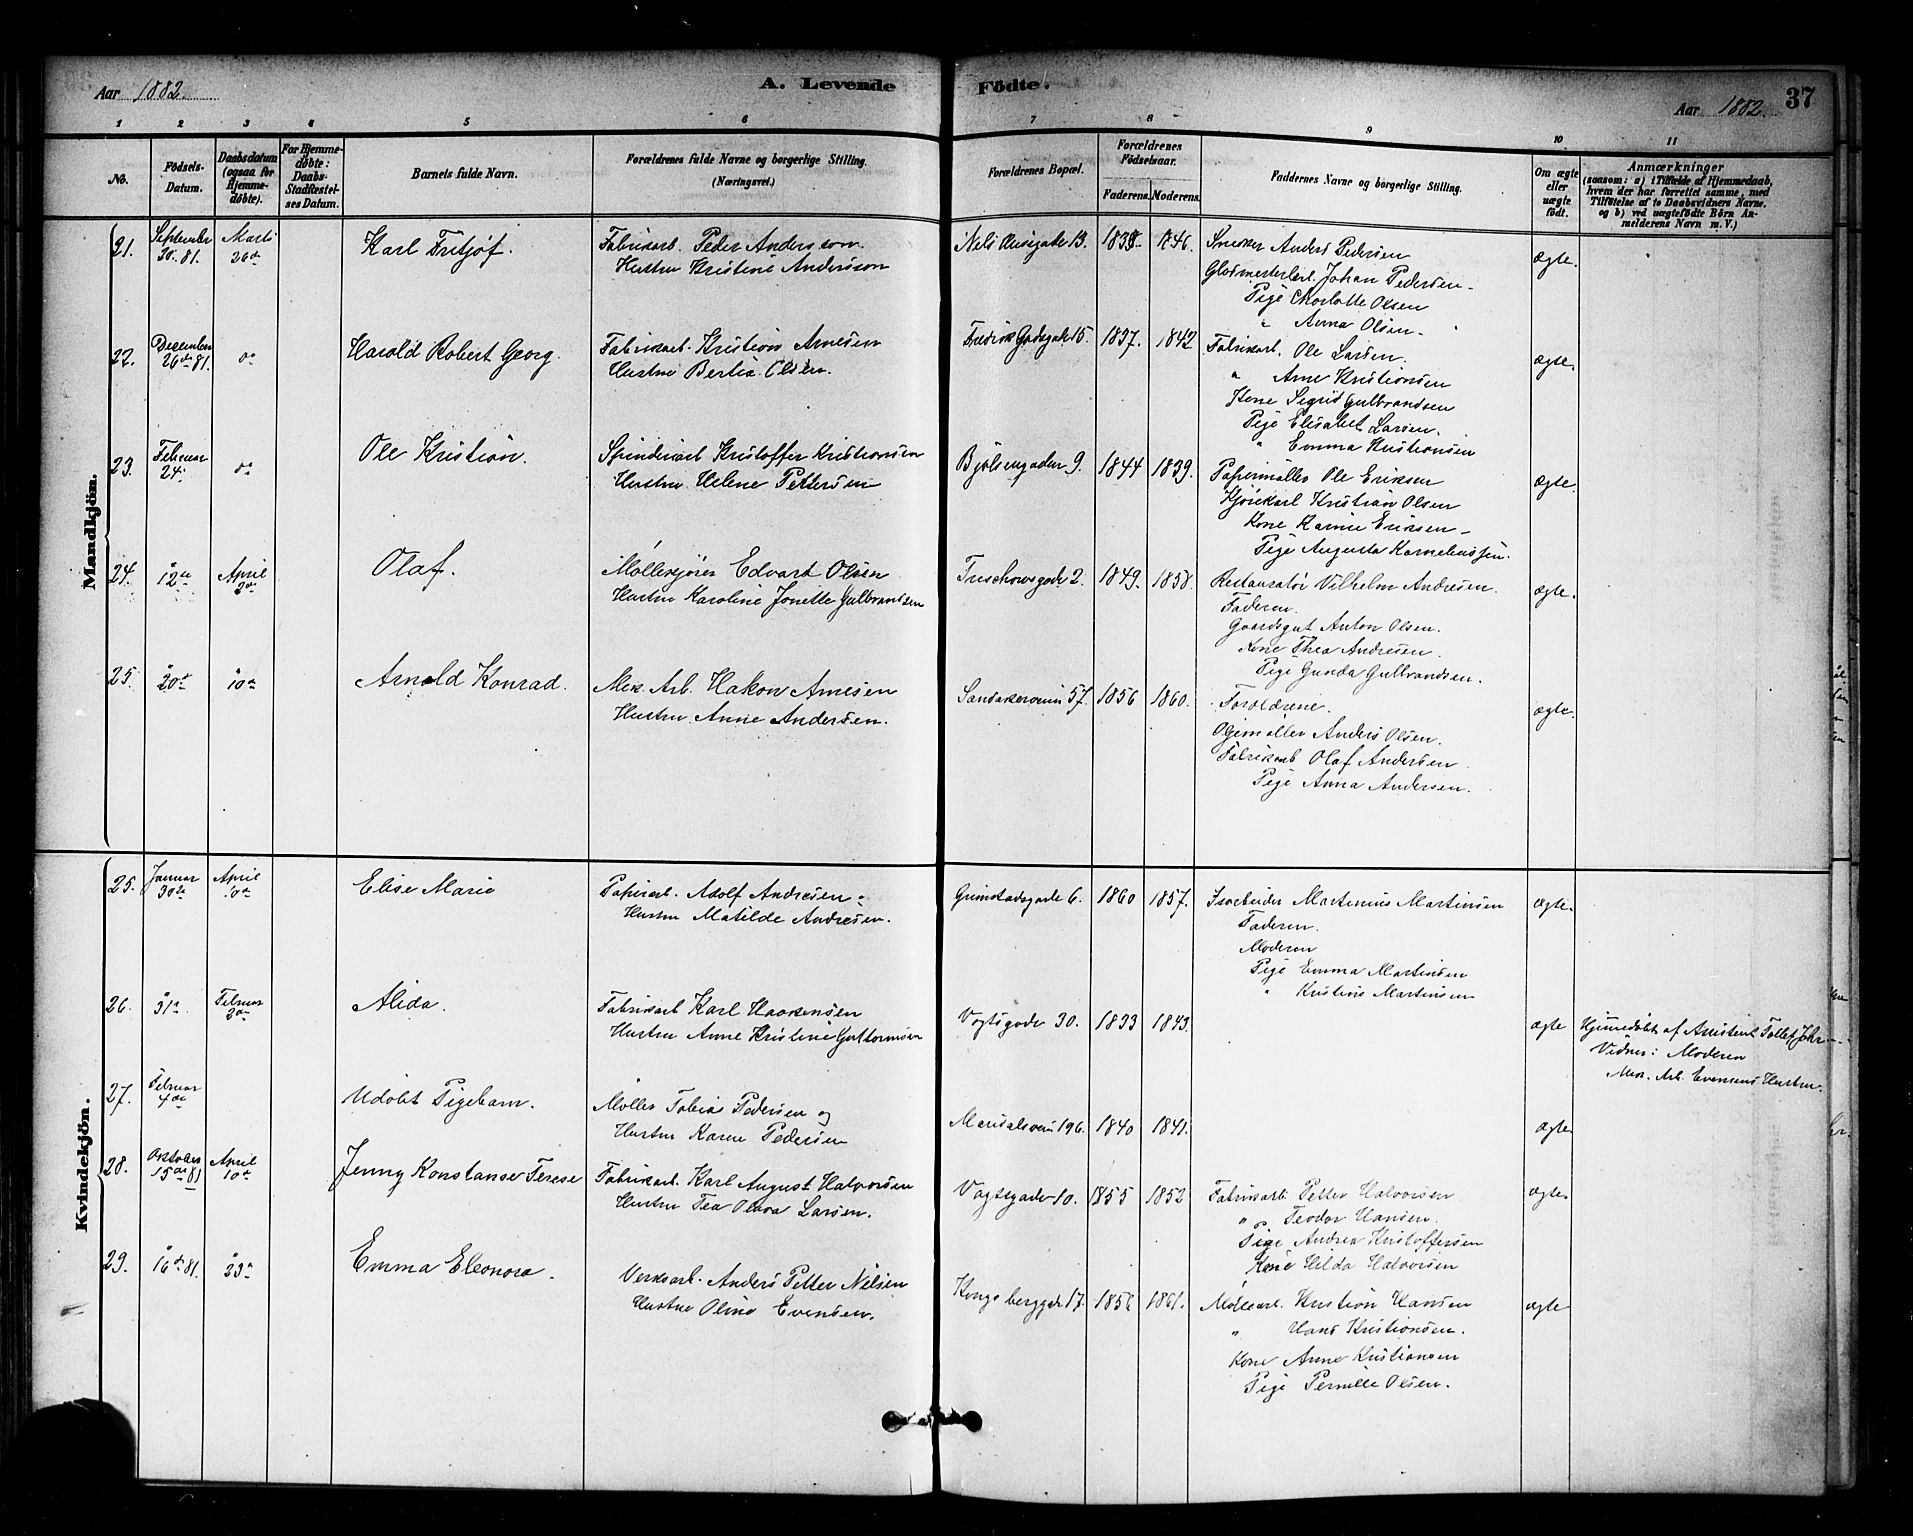 Aar 1882.
A. Levende
Födte.
Aar 1882.
37
1 2 3 4 5 6 7 8 9 10 11
No.
Födsels-
Datum.
Daabsdatum
(ogsaa for
Hjemme-
döbte).
For Hjemme-
döbte:
Daabs-
Stadfæstel-
ses Datum.
Barnets fulde Navn.
Forældrenes fulde Navne og borgerlige Stilling.
(Næringsvei.)
Forældrenes Bopæl.
Forældrenes
Födselsaar.
Faderens. Moderens.
Faddernes Navne og borgerlige Stilling.
Om ægte
eller
uægte
födt.
Anmærkninger
(saasom: a) i Tilfælde af Hjemmedaab,
hvem der har forrettet samme, med
Tilföielse af to Daabsvidners Navne,
og b) ved uægtefödte Börn An-
melderens Navn m. V.)
Mandkjön.
21.
September
30. 81.
Marts
26de
Karl Fritjof.
Fabrikarb. Peder Andersson
Hustru Kristine Andersson
Nels Husgade 13. 1838. 1846.
Snekker Anders Pedersen
Glasmesterlærl. Johan Pedersen
Pige Charlotte Olsen
" Anna Olsen.
ægte.
22.
December
26de 81.
do
Harold Robert Georg.
Fabrikarb. Kristian Arnesen
Hustru Bertia Olsen.
Fredrik Gadsgade 15. 1837. 1842.
Fabrikarb. Ole Larsen.
" Arne Kristiansen
Kone Sigrid Gulbrandsen
Pige Elisabet Larsen.
" Emma Kristiansen
ægte.
23.
Februar
24.
do
Ole Kristian.
Spinderiarb Kristoffer Kristiansen
Hustru Helene Pettersen
Bjölsengaden 9. 1844 1839.
Papirmöller Ole Eriksen
Kjörekarl Kristian Olsen
Kone Karine Eriksen
Pige Augusta Korneliussen.
ægte.
24.
12te
April
2den
Olaf.
Möllekjörer Edvart Olsen
Hustru Karoline Jonette Gulbrandsen
Treschowsgade 2. 1849. 1858.
Restauratör Vilhelm Andresen.
Faderen.
Gaardsgut Anton Olsen.
Kone Thea Andresen.
Pige Gunda Gulbrandsen.
ægte.
25.
20de
10de
Arnold Konrad.
Mek. Arb. Hakon Arnesen
Hustru Anne Andersen.
Sandakerveien 57. 1856 1860.
Forældrene.
Oljemöller Anders Olsen.
Fabrikarb Olaf Andersen
Pige Anna Andersen.
ægte.
Kvindekjön.
25.
Januar
30te
April
10de
Elise Marie
Papirarb. Adolf Andresen.
Hustru Matilde Andresen.
Grimstadsgade 6. 1860 1857.
Isarbeider Martinius Martinsen
Faderen.
Moderen
Pige Emma Martinsen
" Kristine Martinsen
ægte.
26.
31te
Februar
2den
Alida.
Fabrikarb Karl Haakensen
Hustru Anne Kristine Guttormsen
Vogtsgade 30. 1833 1843.
ægte
Hjemmedöbt af Assistent
Vidner: Moderen
Mek. Arb. Evensens Hustru.
27.
Februar
4de
Udöbt Pigebarn.
Möller Tobias Pedersen og
Hustru Karen Pedersen
Maridalsvein 196. 1840 1841.
ægte
28.
Oktober
15de 81
April
10de
Jenny Konstanse Terese
Fabrikarb. Karl August Halvorsen
Hustru Tea Olava Larsen.
Vogtsgade 10. 1855 1852
Fabrikarb. Petter Halvorsen
" Teodor Hansen.
Pige Andrea Kristoffersen
Kone Hilda Halvorsen
ægte
29.
16de 81.
23de
Emma Eleonora.
Verksarb. Anders Petter Nilsen
Hustru Oline Evensen.
Kongsberggade 17. 1856 1861.
Möllearb. Kristian Hansen
" Hans Kristiansen.
Kone Anne Kristiansen
Pige Pernille Olsen.
ægte